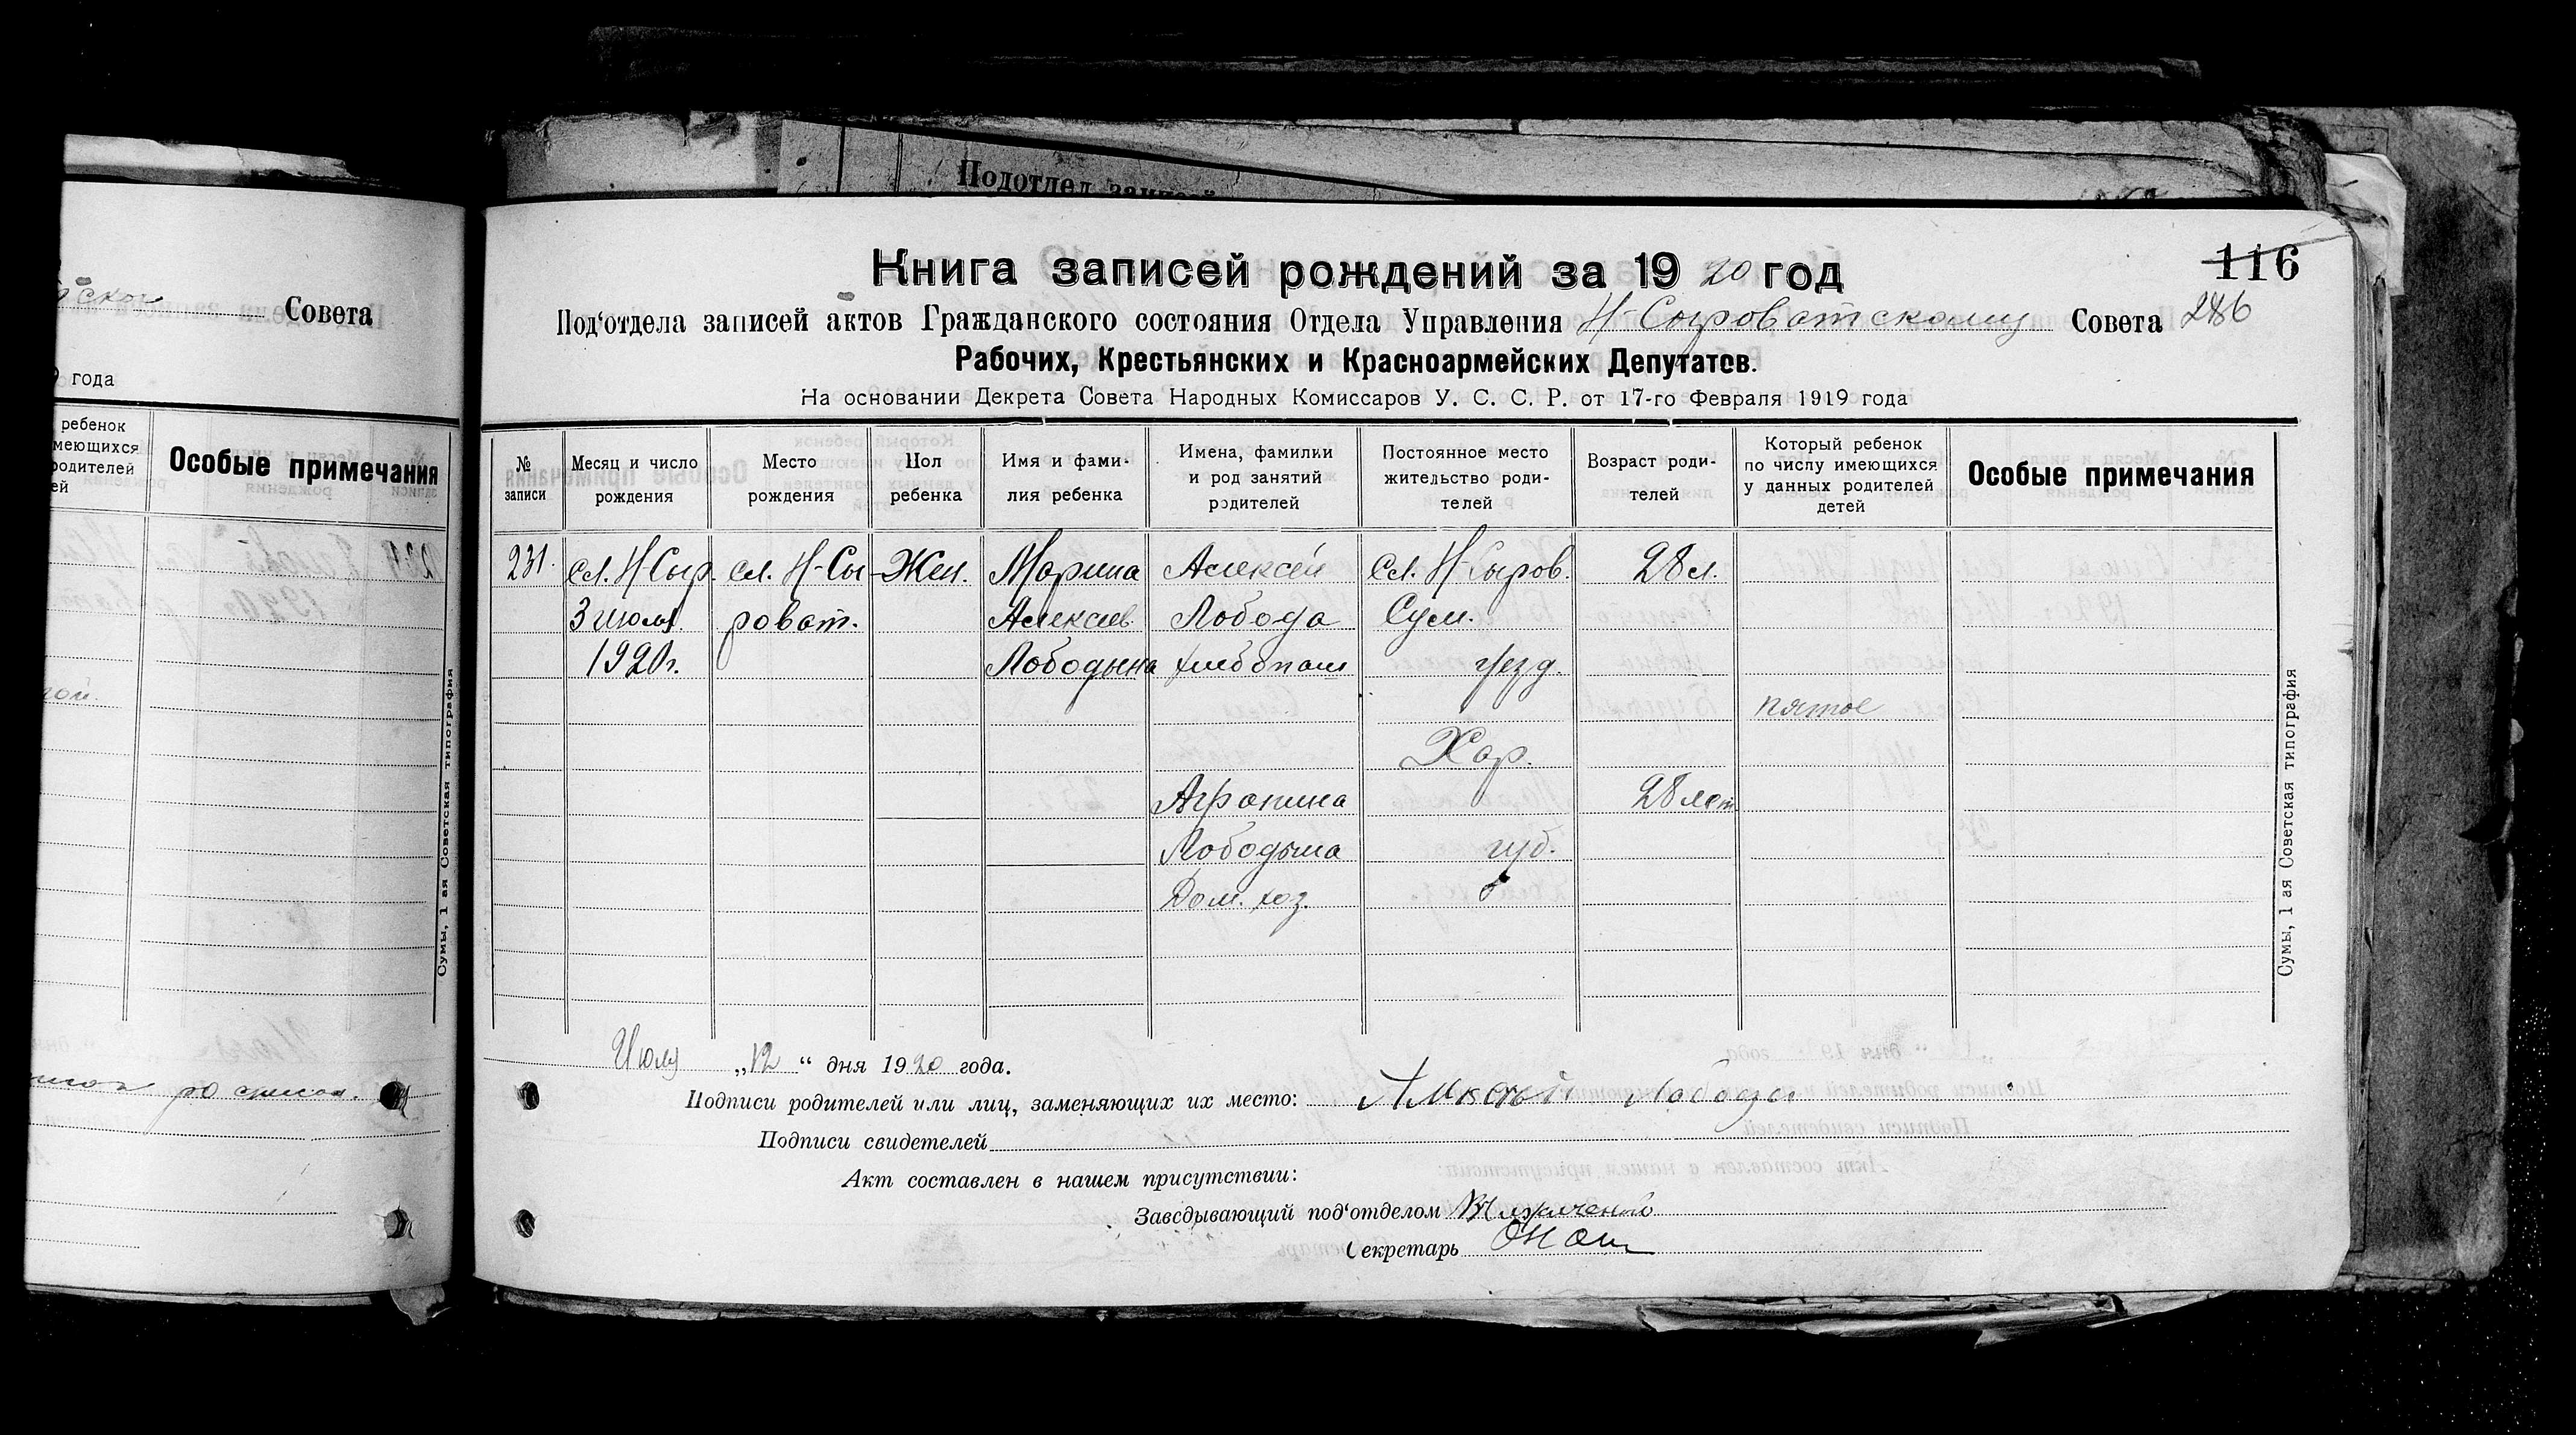 Подотдел записей
ской Совета
года
ребенок
имеющихся
родителей
ей
Особые примечания
Сумы, 1 ая Советская типография
Книга записей рождений за 1920 год
116
Под‘отдела записей актов Гражданского состояния Отдела Управления Н-Сыроватскому Совета 286
Рабочих, Крестьянских и Красноармейских Депутатов.
На основании Декрета Совета Народных Комиссаров У. С. С. Р. от 17-го Февраля 1919 года
№ записи
Месяц и число рождения
Место рождения
Пол ребенка
Имя и фами-
лия ребенка
Имена, фамилки
и род занятий
родителей
Постоянное место
жительство роди-
телей
Возраст роди-
телей
Который ребенок
по числу имеющихся
у данных родителей
детей
Особые примечания
231. сл. Н Сыр. сл. Н-Сы Жен. Марина Алексей сл. Н-Сыров. 28 л.
3 июля роват. Алексеев. Лобода Сум.
1920 г. Лободына хлебопаш уезд.
пятое
Хар.
Аграпина 28 лет
Лободына губ.
Дом. хоз.
Сумы, 1 ая Советская типография
Июля „12“ дня 1920 года.
Подписи родителей или лиц, заменяющих их место: Алксей Лобода
Подписи свидетелей
Акт составлен в нашем присутствии:
Заведывающий под‘отделом
Секретарь